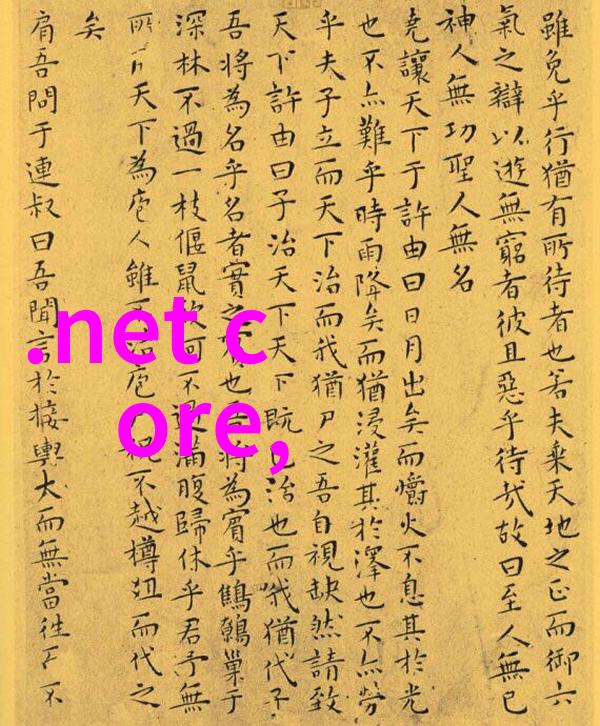 雖免乎行猶有所待者也若夫乘天地之正而御六
氣之辯以遊無窮者彼且惡乎待哉故曰至人無己
神人無功聖人無名
堯讓天下于許由曰日月出矣而爝火不息其於光
也不亦難乎時雨降矣而猶浸灌其於澤也不亦勞
乎夫子立而天下治而我猶尸之吾自視缺然請致
天下許由曰子治天下天下既已治也而我猶代子
吾將為名乎名者實之賓也吾將為賓乎鷦鷯巢于
深林不過一枝偃鼠飲河不過滿腹歸休乎君予無
所用天下為庖人雖不治庖尸祝不越樽俎而代之
矣
肩吾問于連叔曰吾聞言於接輿大而無當往而不
.net c
ore,